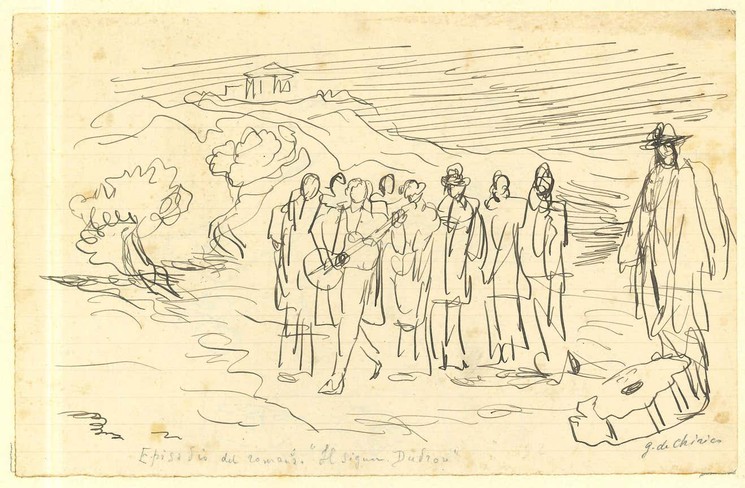 Episodio del romanzo "Il signor Dudron"
g. de Chirico